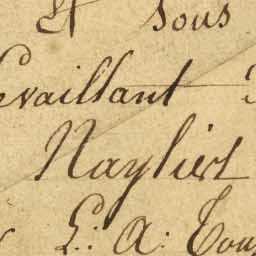 & sous
evaillant
Naylies
L. A. Tou